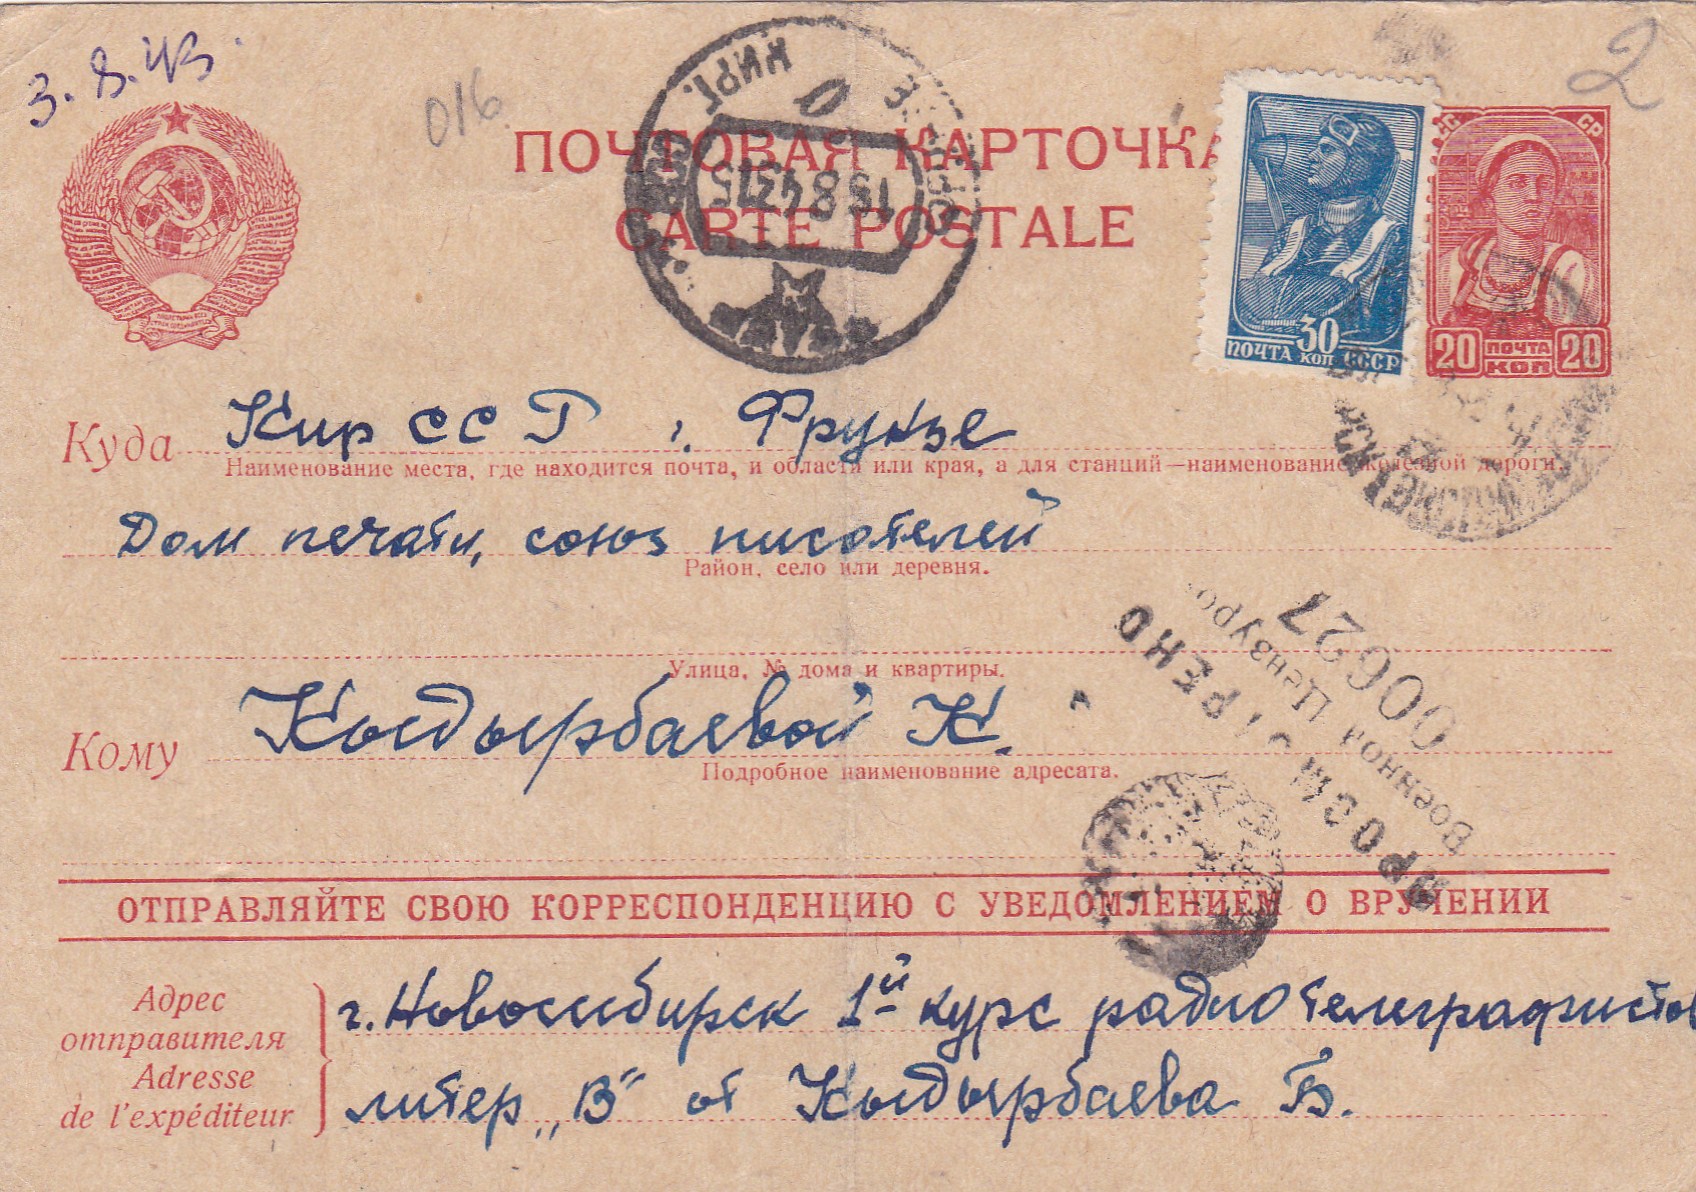 3. 8. 43
016
2
ПОЧТОВАЯ КАРТОЧКА
CARTE POSTALE
КИРГ.
15 8 43 15
СС СР
30
ПОЧТА КОП СССР
20 ПОЧТА КОП 20
Куда Кир ССР г. Фрунзе
Наименование места, где находится почта, и области или края, а для станций—наименование железной дороги.
Дом печати, союз писателей
Район, село или деревня.
Улица, № дома и квартиры.
Кому Кыдырбаевой К.
Подробное наименование адресата.
ПРОСМОТРЕНО
Военной Цензурой
00627
ОТПРАВЛЯЙТЕ СВОЮ КОРРЕСПОНДЕНЦИЮ С УВЕДОМЛЕНИЕМ О ВРУЧЕНИИ
Адрес отправителя
Adresse de l'expéditeur
г. Новосибирск 1й курс радиотелеграфистов
литер „В" от Кыдырбаева Б.